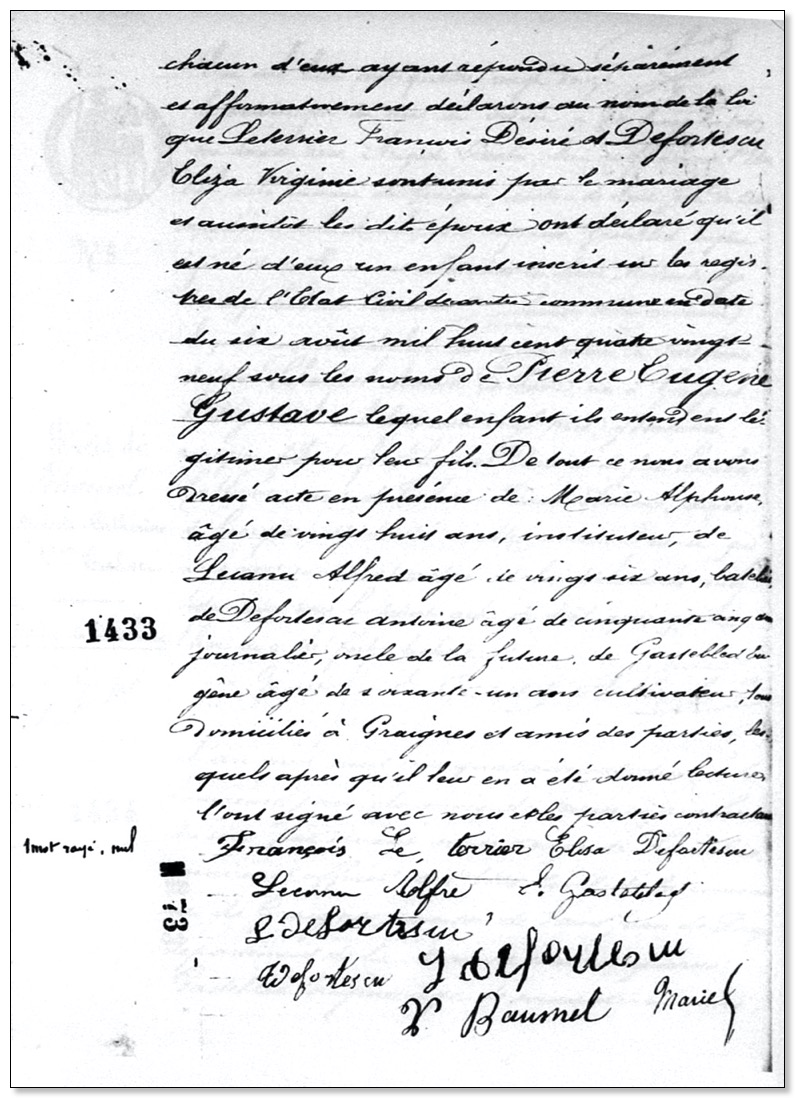 chacun d'eux ayant répondu séparément
et affirmativement déclarons au nom de la loi
que Leterrier François Désiré et Defortescu
Eliza Virginie sont unis par le mariage
et aussitôt les dits epoux ont déclaré qu'il
est né d'eux un enfant inscrit sur les regis-
tres de l'Etat Civil de cette commune en date
du six août mil huit cent quatre vingt-
neuf sous les noms de Pierre Eugene
Gustave lequel enfant ils entendent lé-
gitimer pour leur fils. De tout ce nous avons
dressé acte en présence de Marie Alphonse,
âgé de vingt huit ans, instituteur, de
Lecanu Alfred âgé de vingt six ans, batelier
de Defortescu antoine âgé de cinquante cinq ans
journalier, oncle de la future, de Gastebled Eu
gène âgé de soixante-un ans cultivateur, tous
domiciliés à Graignes et amis des parties, les-
quels après qu'il leur en a été donné lecture
l'ont signé avec nous et les parties contractantes
1433
1 mot rayé, nul
François Le terrier Elisa Defortescu
Lecanu Alfre E. Gastebled
L defortescu
Defortescu J defortescu
V Baumel Marie